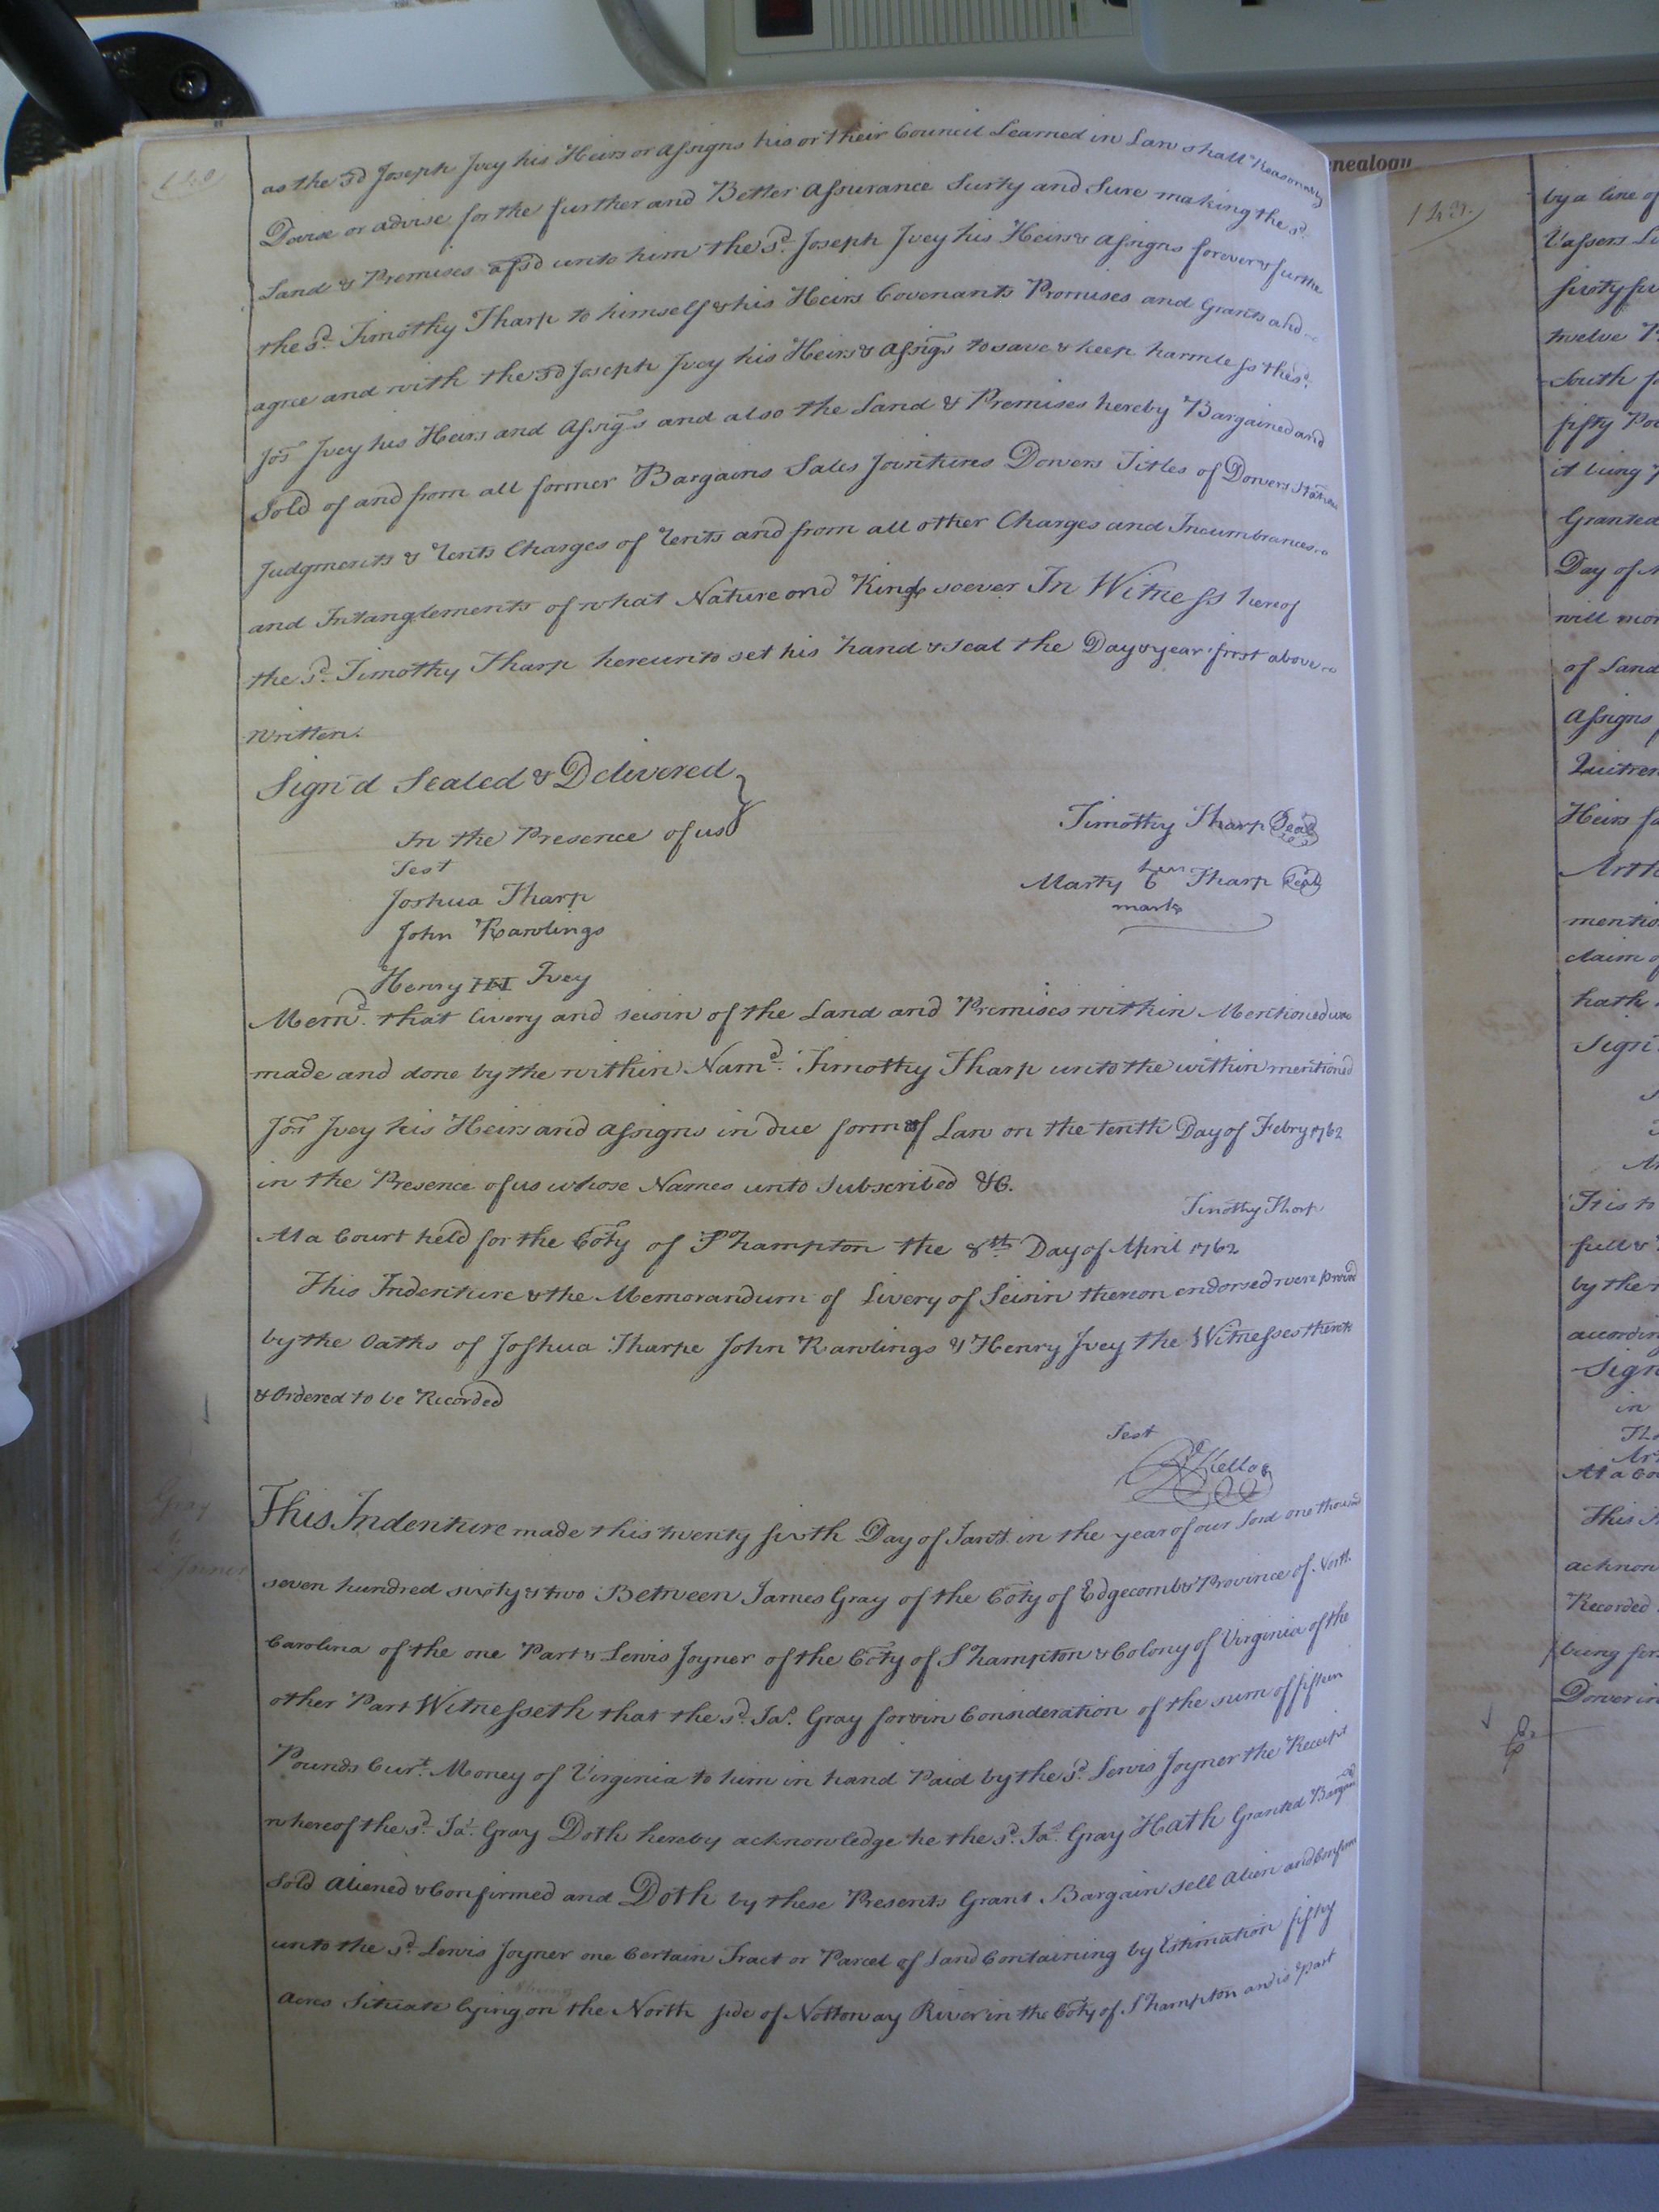 140
as the sd Joseph Ivey his Heirs or Assigns his or their Council Learned in Law shall Reasonably
Devise or advise for the further and Better Assurance Surty and Sure making the sd.
Land & Premises afsd unto him the sd. Joseph Ivey his Heirs & Assigns forever & further
the sd. Timothy Tharp to himself & his Heirs Covenants Promises and Grants and
agree and with the sd Joseph Ivey his Heirs & Assigs to save & keep harmless the sd.
Jos Ivey his Heirs and Assigs and also the Land & Premises hereby Bargained and
Sold of and from all former Bargains Sales Jointures Dowers Titles of Dowers
Judgments & Rents Charges of Rents and from all other Charges and Incumbrances
and Intanglements of what Nature and Kind soever In Witness hereof
the sd. Timothy Tharp hereunto set his hand & seal the Day & year first above
written.
Sign'd Sealed & Delivered
In the Presence of us
Timothy Tharp Seal
Test
her
Marty 6 Tharp Seal
mark
Joshua Tharp
John Rawlings
Henry Ivey
Memd. that livery and seisin of the Land and Premises within Mentioned was
made and done by the within Namd. Timothy Tharp unto the within mentioned
Jos Ivey his Heirs and Assigns in due form of Law on the tenth Day of Febry 1762
in the Presence of us whose Names unto Subscribed &C.
Timothy Tharp
At a Court held for the Coty of Shampton the 8th Day of April 1762
This Indenture & the Memorandum of Livery of Seisin thereon endorsed were proved
by the Oaths of Joshua Tharpe John Rawlings & Henry Ivey the Witnesses thereto
& Ordered to be Recorded
Test
Rd Kello
Gray
to
Joyner
This Indenture made this twenty sixth Day of in the year of our Lord one thousand
seven hundred sixty & two Between James Gray of the Coty of Edgecomb & Province of North
Carolina of the one Part & Lewis Joyner of the Coty of Shampton & Colony of Virginia of the
other Part Witnesseth that the sd. Jas. Gray for & in Consideration of the sum of fifteen
Pounds Curt. Money of Virginia to him in hand Paid by the sd. Lewis Joyner the Receipt
whereof the sd. Jas. Gray Doth hereby acknowledge he the sd. Jas. Gray Hath Granted Bargained
Sold Aliened & Confirmed and Doth by these Presents Grant Bargain sell Alien and Confirm
unto the sd. Lewis Joyner one Certain Tract or Parcel of Land Containing by Estimation fifty
Acres Situate lying & being on the North side of Nottoway River in the Coty of Shampton and is Part
nealogy
141
by a line of
Vassers
twelve
South
fifty
it being
Granted
Day of
will
of Land
Assigns
Quitren
Heirs
Arth
mentio
claim
hath
Sign
It is
full &
by the
according
Sign
in
At a Co
This
acknow
Recorded
being
Dower in